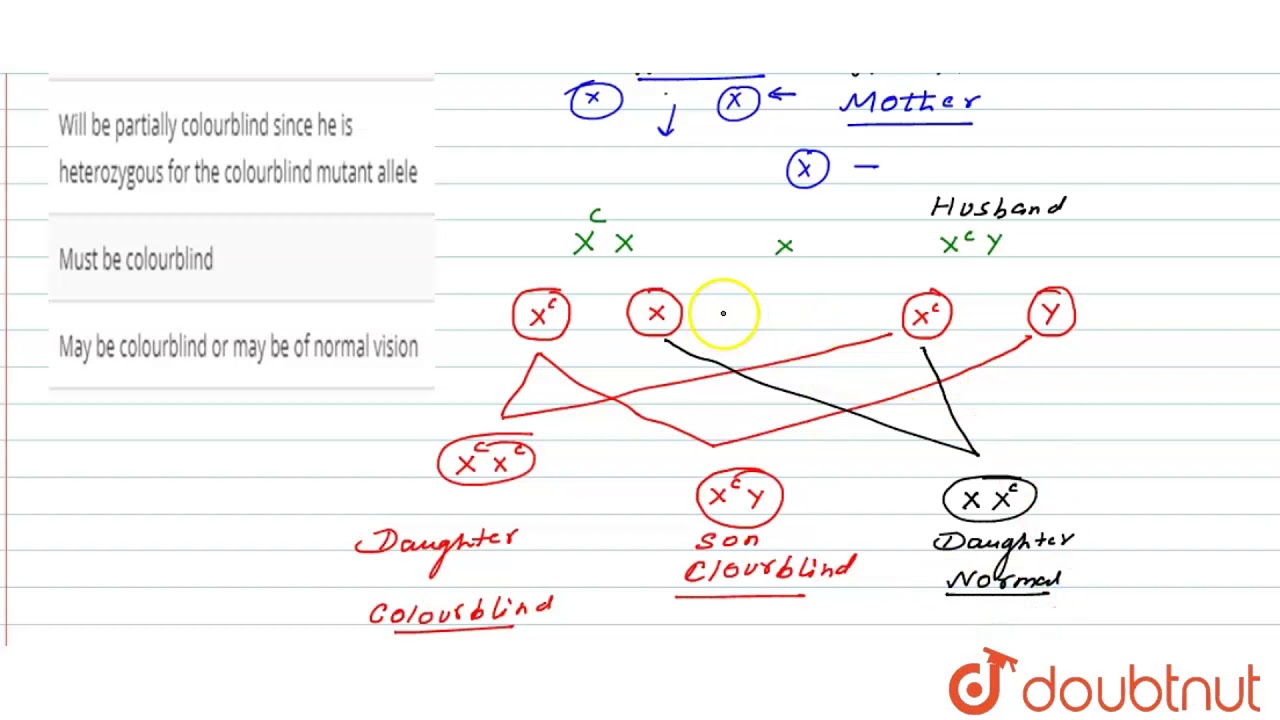 Will be partially colourblind since he is
heterozygous for the colourblind mutant allele
Must be colourblind
May be colourblind or may be of normal vision
X X ← Mother
X —
Husband
X^C X x X^C Y
X^C X X^C Y
X^C X^C
X^C Y
X X^C
Daughter
Colourblind
Son
Clourblind
Daughter
Normal
doubtnut